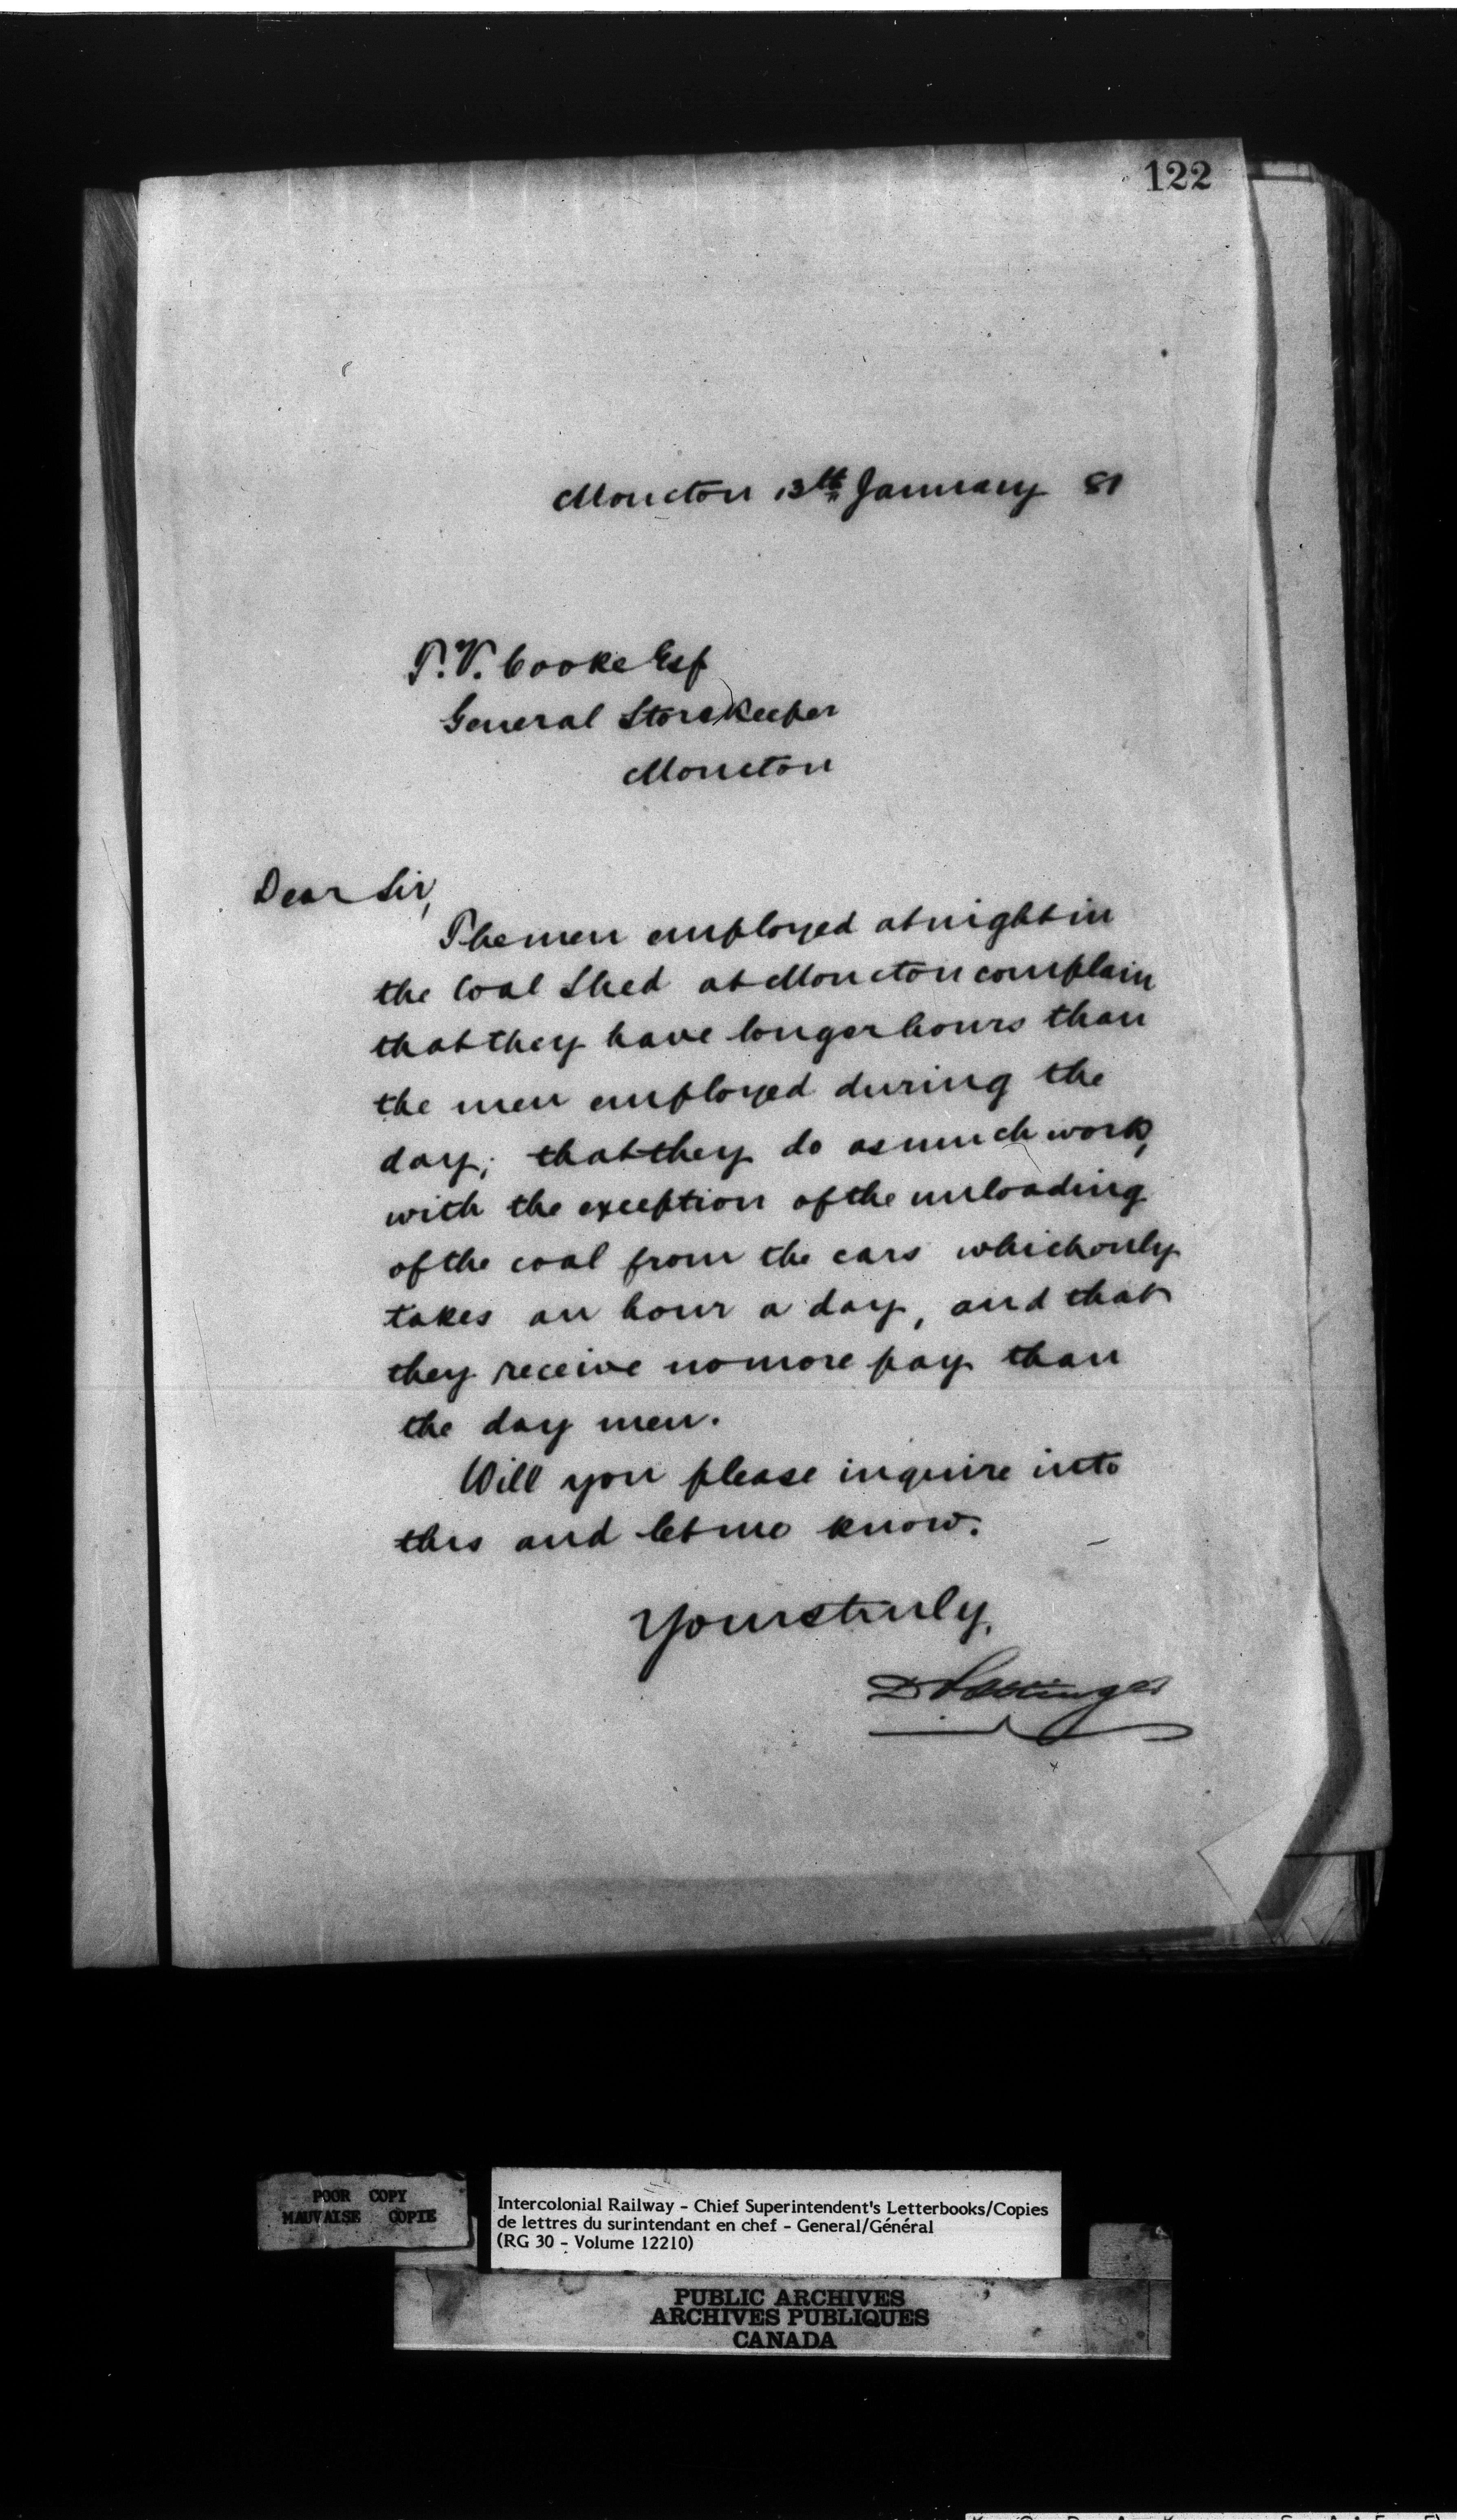 122
Moncton 13th January 81
T. V. Cooke Esq
General Storekeeper
Moncton
Dear Sir,
The men employed at night in
the Coal Shed at Moncton complain
that they have longer hours than
the men employed during the
day; that they do as much work,
with the exception of the unloading
of the coal from the cars which only
takes an hour a day, and that
they receive no more pay than
the day men.
Will you please inquire into
this and let me know.
Yours truly,
D Pottinger
POOR COPY
MAUVAISE COPIE
Intercolonial Railway - Chief Superintendent's Letterbooks/Copies
de lettres du surintendant en chef - General/Général
(RG 30 - Volume 12210)
PUBLIC ARCHIVES
ARCHIVES PUBLIQUES
CANADA